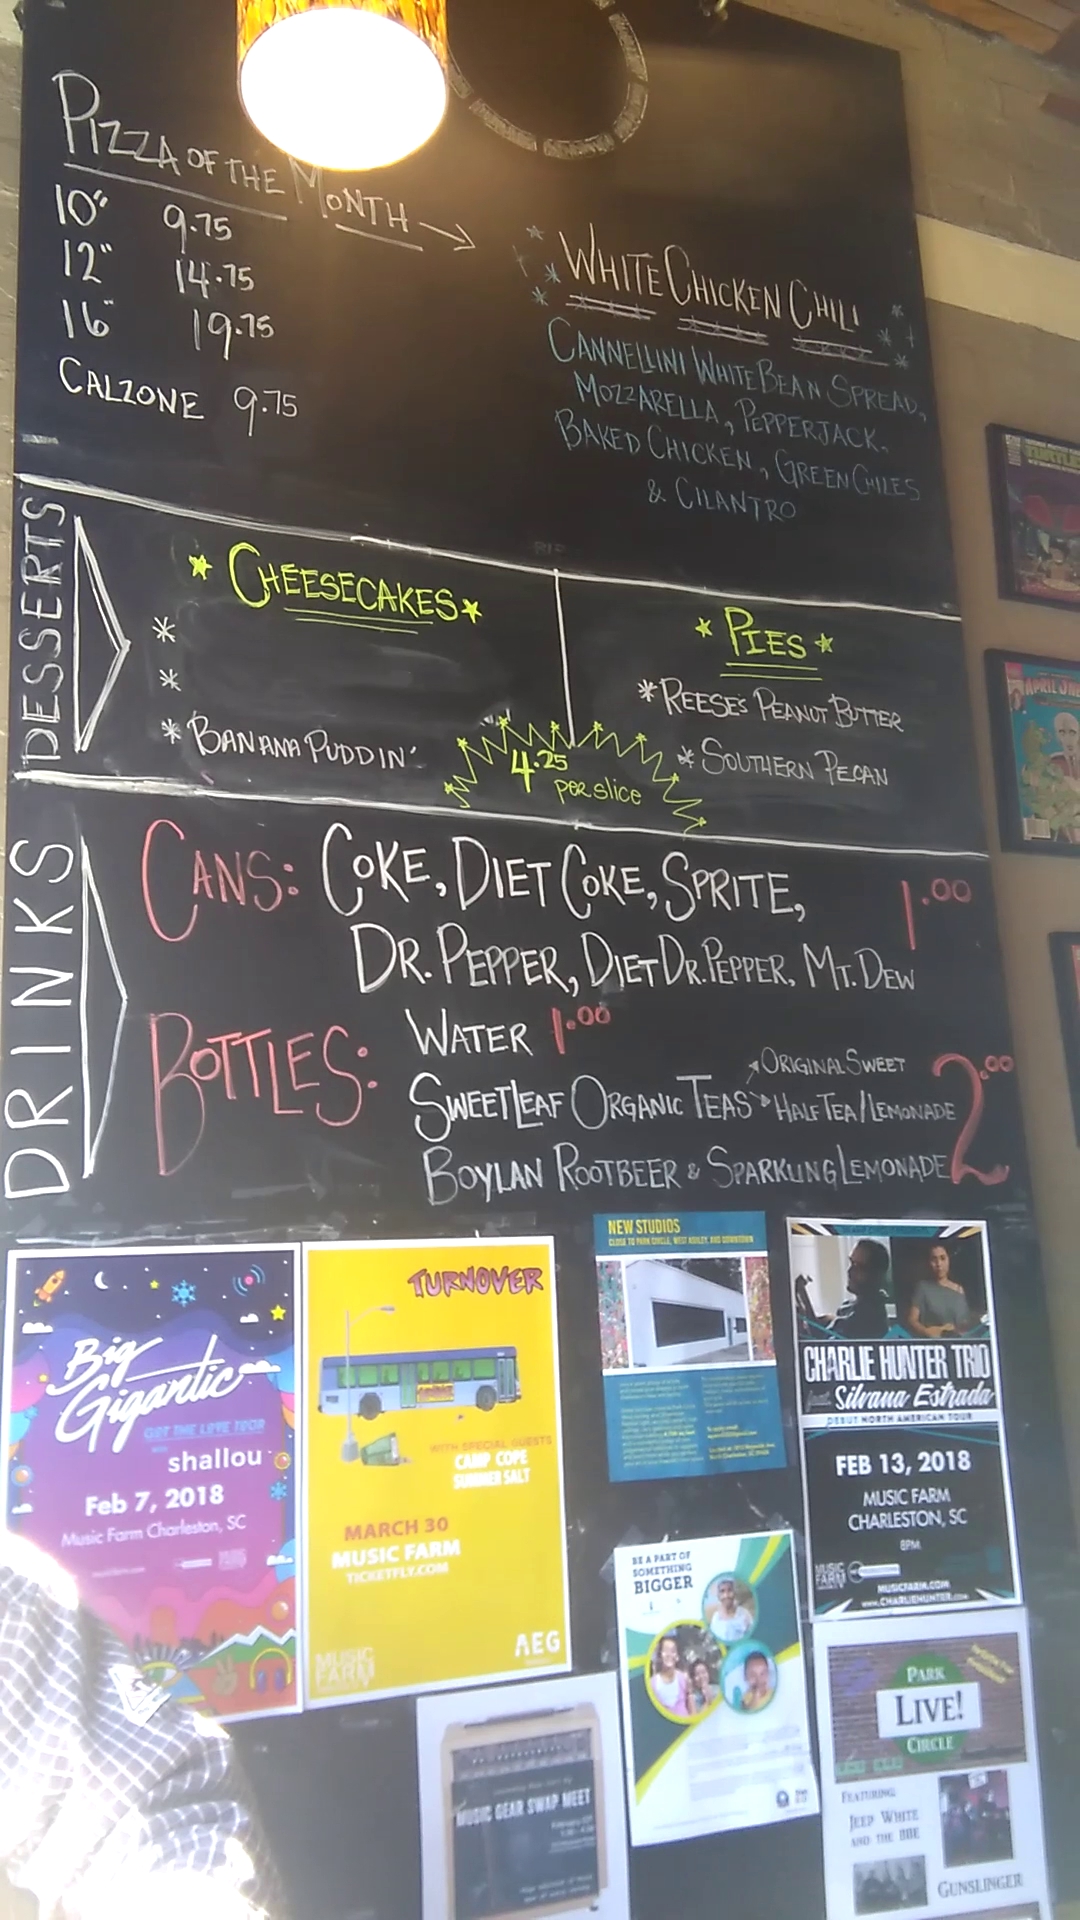 PIZZA OF THE MONTH →
10" 9.75
12" 14.75
16" 19.75
CALZONE 9.75
WHITE CHICKEN CHILI
CANNELLINI WHITE BEAN SPREAD,
MOZZARELLA, PEPPERJACK,
BAKED CHICKEN, GREEN CHILES
& CILANTRO
DESSERTS
* CHEESECAKES *
*
*
* BANANA PUDDIN'
* PIES *
* REESE'S PEANUT BUTTER
* SOUTHERN PECAN
4.25
per slice
DRINKS
CANS: COKE, DIET COKE, SPRITE, 1.00
DR. PEPPER, DIET DR. PEPPER, MT. DEW
BOTTLES: WATER 1.00
ORIGINAL SWEET
SWEETLEAF ORGANIC TEAS HALF TEA/LEMONADE 2.00
BOYLAN ROOTBEER & SPARKLING LEMONADE
Big
Gigantic
GOT THE LOVE TOUR
with
shallou
Feb 7, 2018
Music Farm Charleston, SC
TURNOVER
WITH SPECIAL GUESTS
CAMP COPE
SUMMER SALT
MARCH 30
MUSIC FARM
TICKETFLY.COM
MUSIC
FARM
AEG
NEW STUDIOS
CLOSE TO PARK CIRCLE, WEST ASHLEY, AND DOWNTOWN
CHARLIE HUNTER TRIO
feat. Silvana Estrada
DEBUT NORTH AMERICAN TOUR
FEB 13, 2018
MUSIC FARM
CHARLESTON, SC
8PM
MUSIC
FARM
MUSICFARM.COM
WWW.CHARLIEHUNTER.COM
BE A PART OF
SOMETHING
BIGGER
MUSIC GEAR SWAP MEET
PARK
LIVE!
CIRCLE
FEATURING:
JEEP WHITE
AND THE BBE
GUNSLINGER
APRIL O'NEIL